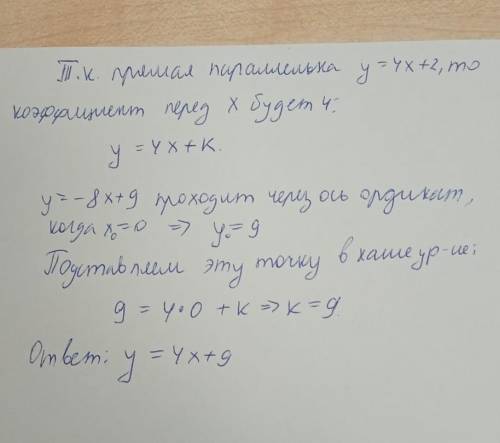 Т.к. прямая параллельна y = 4x+2, то
коэффициент перед x будет 4:
y = 4x + k.
y = -8x + 9 проходит через ось ординат,
когда x₀ = 0 => y₀ = 9
Подставляем эту точку в наше ур-ие:
9 = 4•0 + k => k = 9.
Ответ: y = 4x + 9